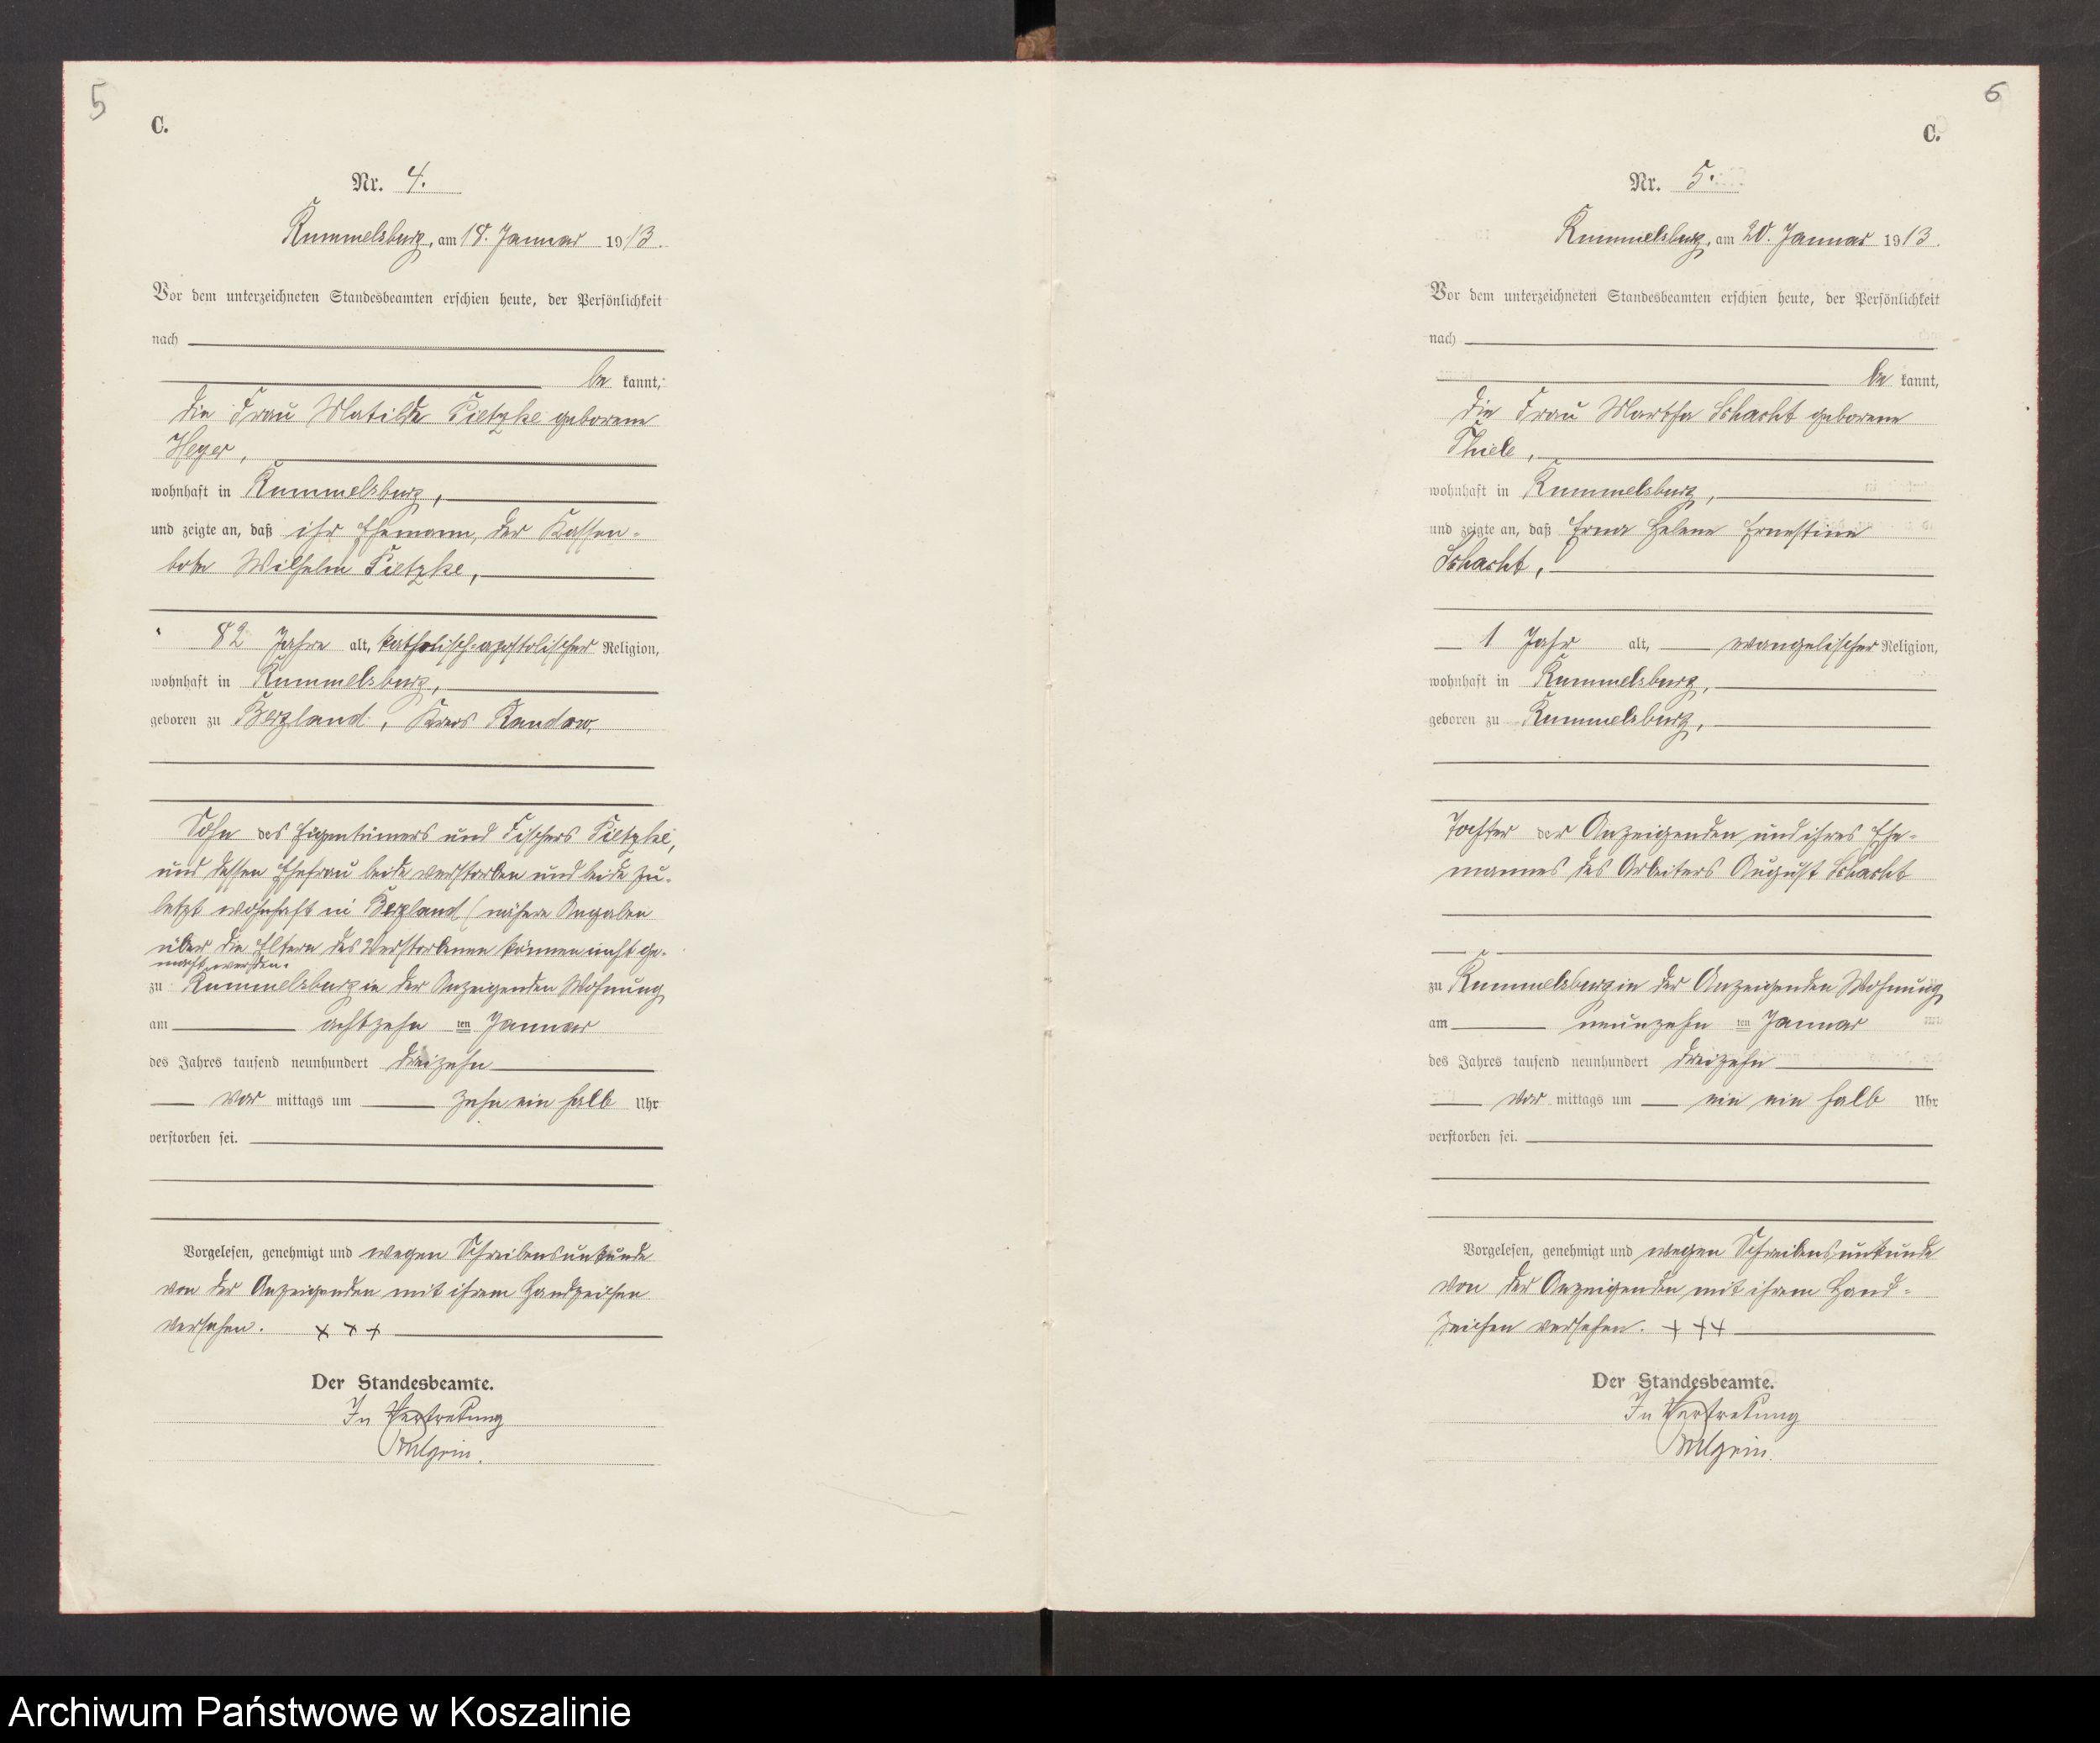 5
C.
Nr. 4.
Rummelsburg, am 18. Januar 1913.
Vor dem unterzeichneten Standesbeamten erschien heute, der Persönlichkeit
nach
be kannt,
die Frau Matilde Tietzke geborene
Heyer,
wohnhaft in Rummelsburg,
und zeigte an, daß ihr Ehemann, der Kassen-
bote Wilhelm Tietzke,
82 Jahre alt, katholisch-apostolischer Religion,
wohnhaft in Rummelsburg,
geboren zu Bergland, Kreis Randow,
Sohn des Eigentümers und Fischers Tietzke,
und dessen Ehefrau beide verstorben und beide zu-
letzt wohnhaft in Bergland (nähere Angaben
über die Eltern des Verstorbenen können nicht ge-
macht werden.
zu Rummelsburg in der Anzeigenden Wohnung
am achtzehn ten Januar
des Jahres tausend neunhundert dreizehn
Vor mittags um zehn ein halb Uhr
verstorben sei.
Vorgelesen, genehmigt und wegen Schreibensunkunde
von der Anzeigenden mit ihrem Handzeichen
versehen. + + +
Der Standesbeamte.
In Vertretung
6
C.
Nr. 5.
Rummelsburg, am 20. Januar 1913.
Vor dem unterzeichneten Standesbeamten erschien heute, der Persönlichkeit
nach
be kannt,
die Frau Martha Schacht geborene
Thiele,
wohnhaft in Rummelsburg,
und zeigte an, daß Erna Helene Ernestine
Schacht,
1 Jahr alt, evangelischer Religion,
wohnhaft in Rummelsburg,
geboren zu Rummelsburg,
Tochter der Anzeigenden und ihres Ehe-
mannes des Arbeiters August Schacht
zu Rummelsburg in der Anzeigenden Wohnung
am neunzehn ten Januar
des Jahres tausend neunhundert dreizehn
Vor mittags um ein ein halb Uhr
verstorben sei.
Vorgelesen, genehmigt und wegen Schreibensunkunde
von der Anzeigenden mit ihrem Hand-
zeichen versehen. + + +
Der Standesbeamte.
In Vertretung
Archiwum Państwowe w Koszalinie